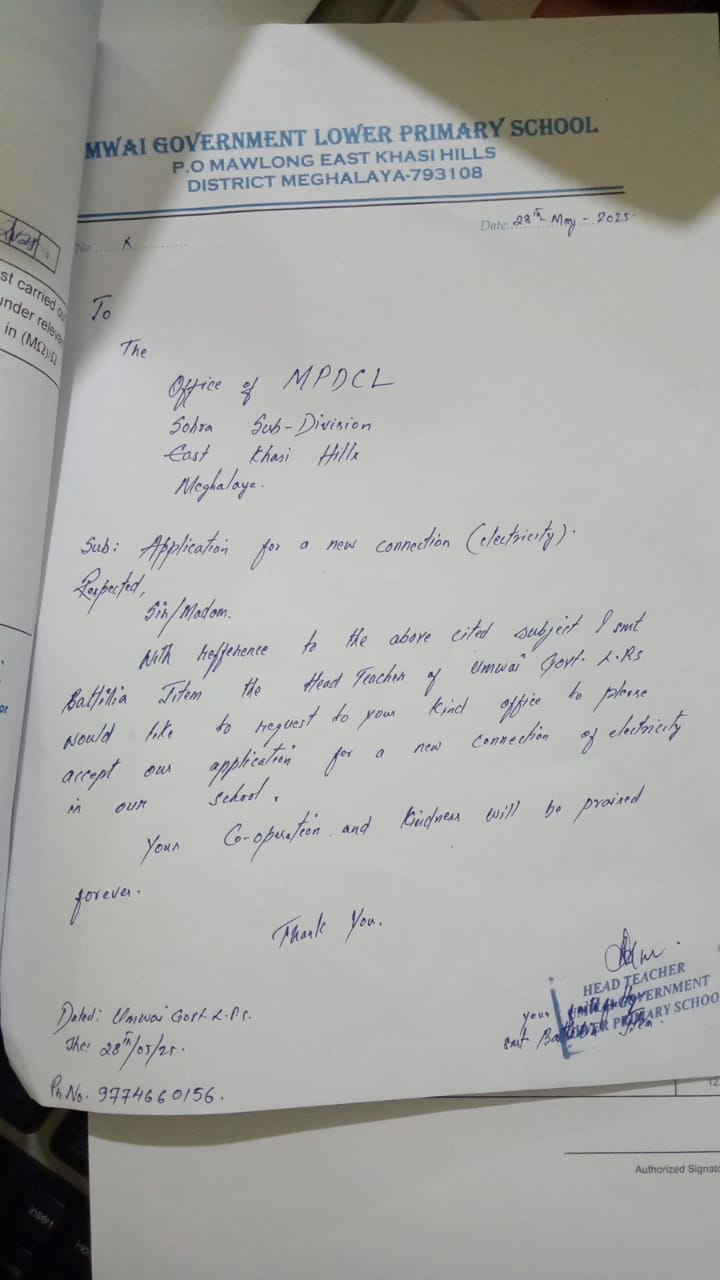 MWAI GOVERNMENT LOWER PRIMARY SCHOOL
P.O MAWLONG EAST KHASI HILLS
DISTRICT MEGHALAYA-793108
No ..... x ............
Date: 28th May - 2025.
st carried ou
under releva
in (MΩ)/Ω
To
The
Office of MPDCL
Sohra Sub-Division
East Khasi Hills
Meghalaya.
Sub: Application for a new connection (electricity).
Respected,
Sir/Madam.
With refference to the above cited subject I smt
Battilia Jitem the Head Teacher of Umwai Govt. L.P.S
would like to request to your kind office to please
accept our application for a new connection of electricity
in our school.
Your Co-operation and kindness will be praised
forever.
Thank You.
HEAD TEACHER
GOVERNMENT
LOWER PRIMARY SCHOO
your
smt
Dated: Umwai Govt. L.P.S.
The: 28th/05/25.
Ph.No. 9774660156.
12
Authorized Signato
Insert